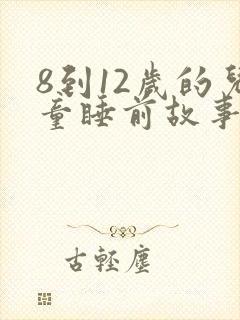 8到12歲的兒
童睡前故事
古輕塵